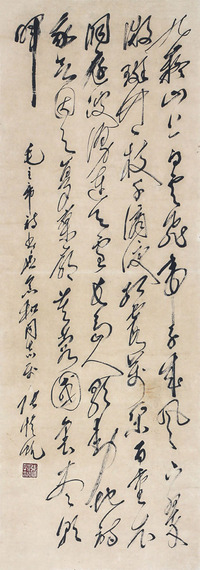 九嶷山上白雲飛帝子乘風下翠
微斑竹一枝千滴淚紅霞萬朵百重衣
洞庭波湧連天雪長島人歌動地詩
我欲因之夢寥廓芙蓉國里盡朝
暉
毛主席詩 和同志